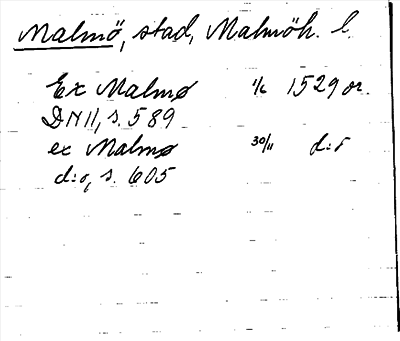 Malmö, stad, Malmöh. l.
Ex Malmø 1/6 1529 or.
DN II, s. 589
ex Malmø 30/11 d:o
d:o, s. 605